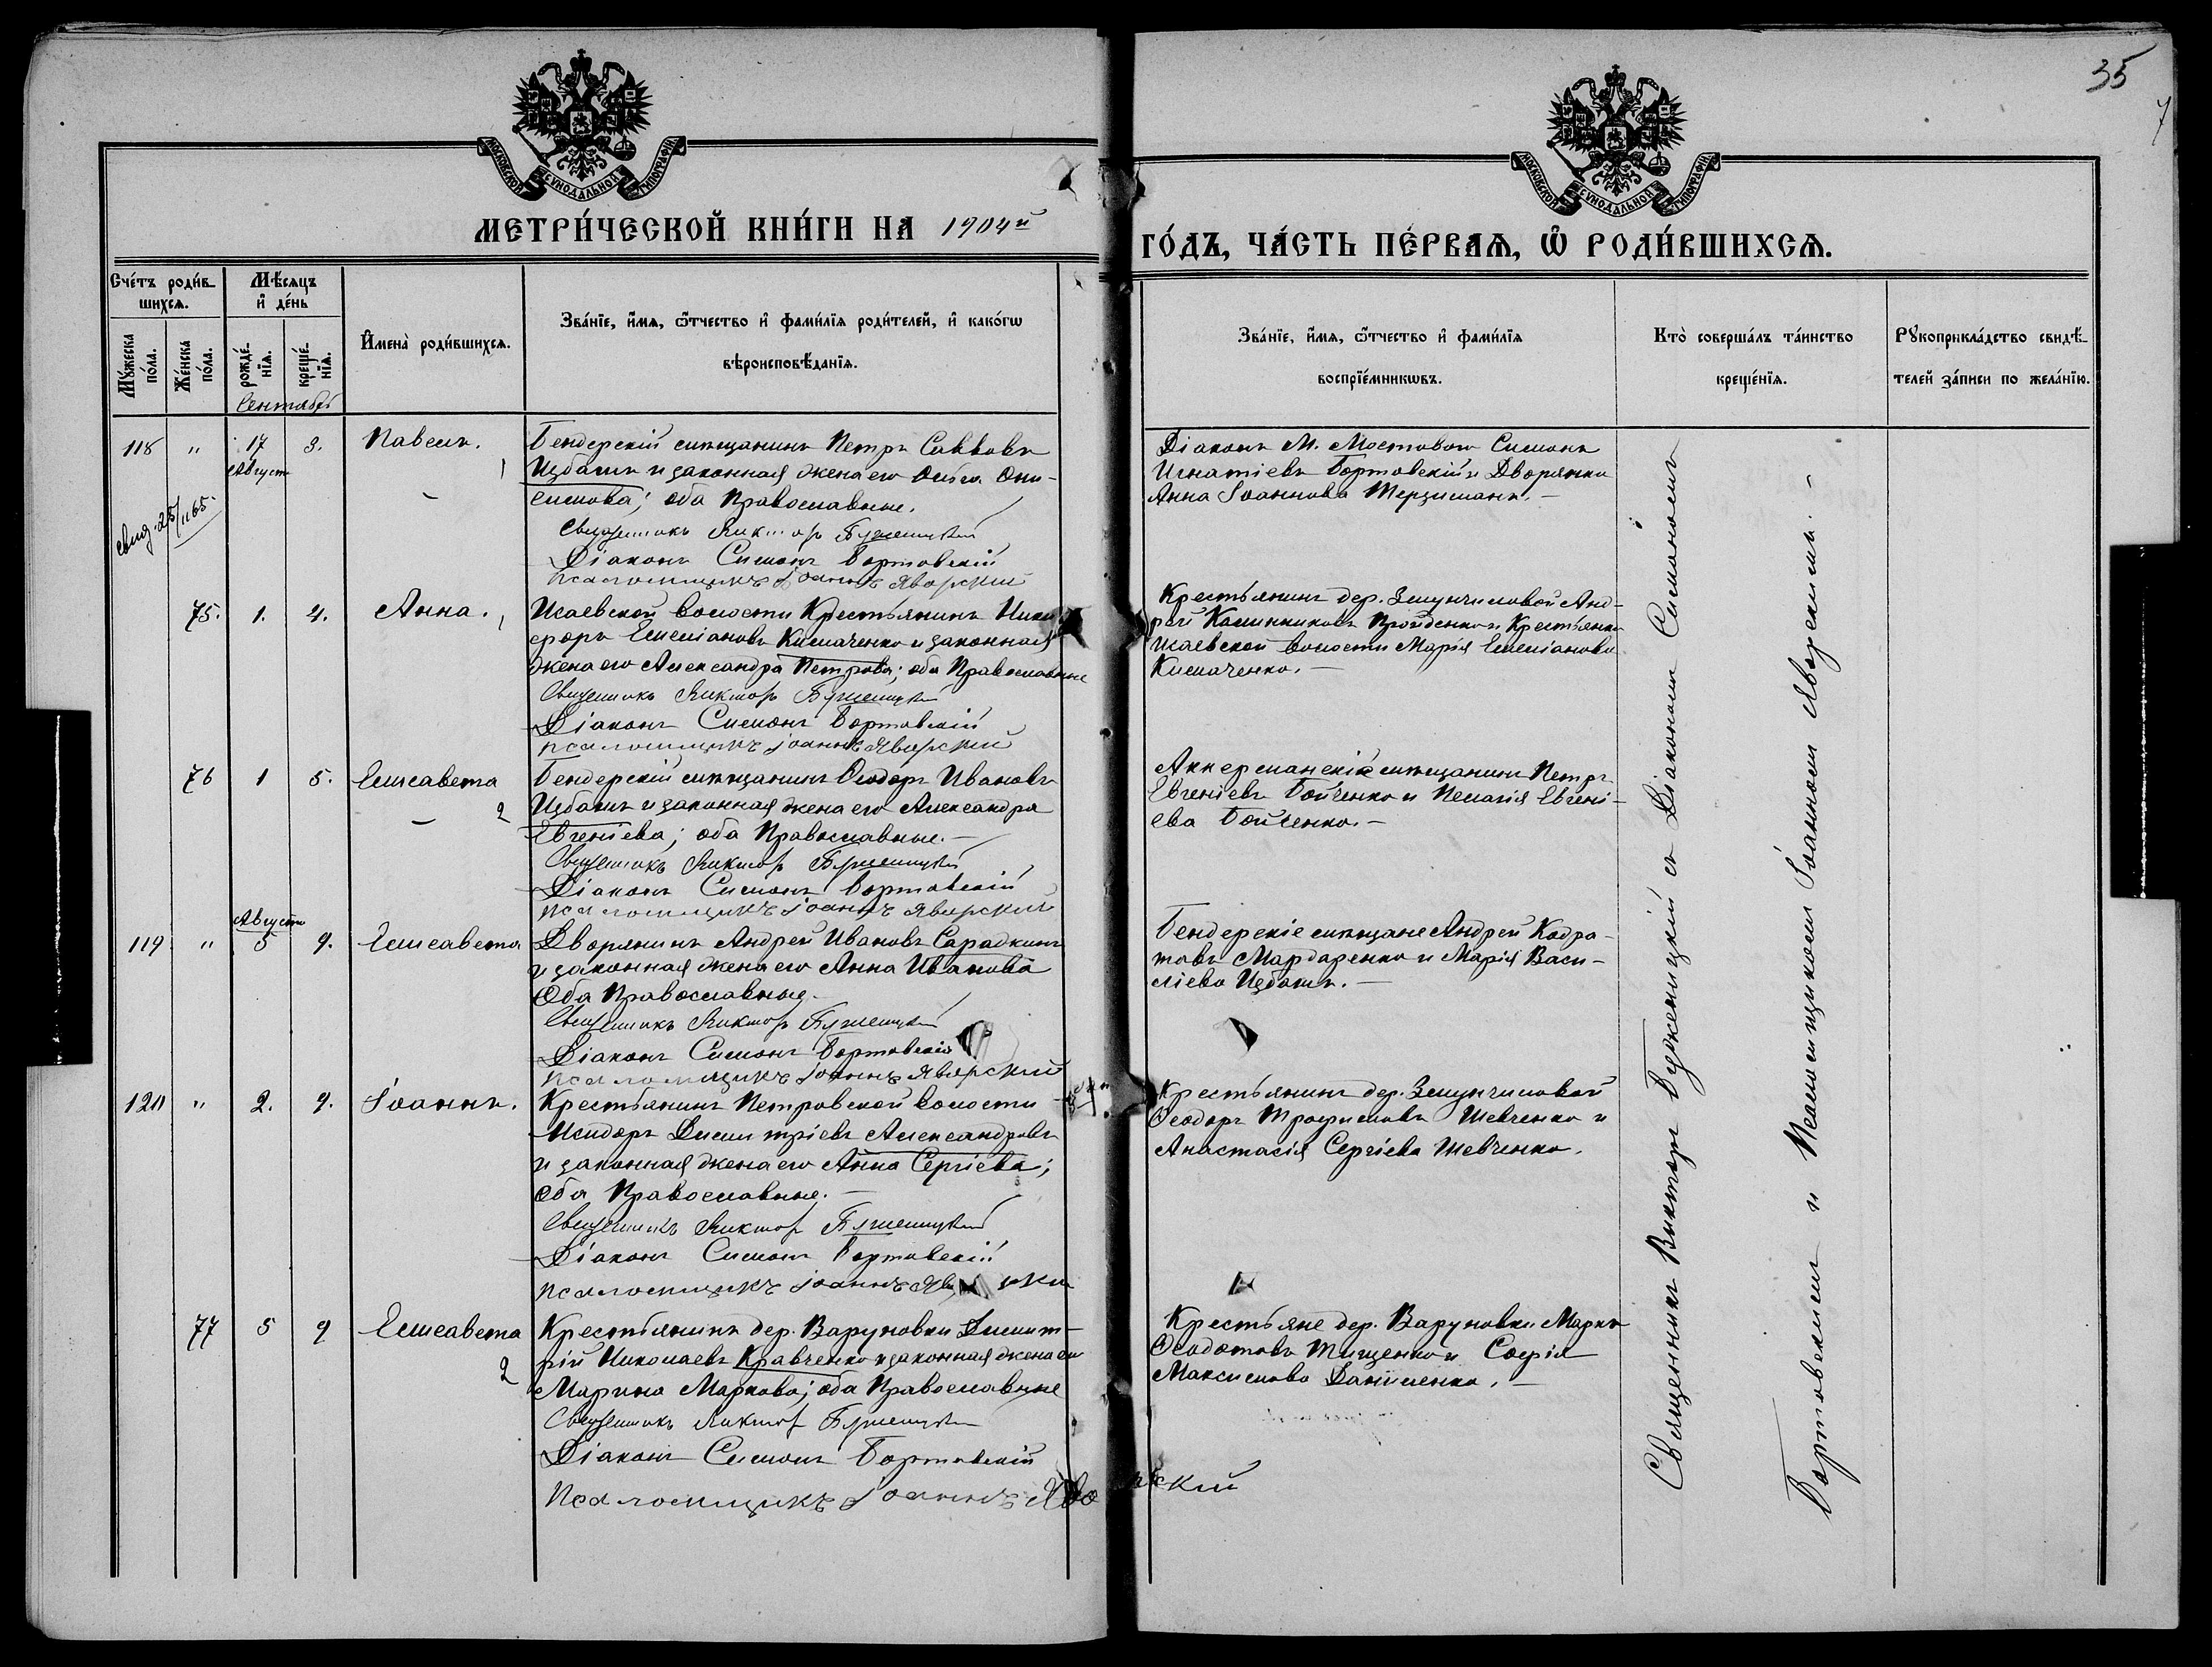 35
МОСКОВСКОЙ СѴНОДАЛЬНОЙ ТИПОГРАФІИ
МОСКОВСКОЙ СѴНОДАЛЬНОЙ ТИПОГРАФІИ
МЕТРИ́ЧЕСКОЙ КНИ́ГИ НА 1904й
ГО́ДЪ, ЧА́СТЬ ПЕ́РВАѦ, Ѿ РОДИ́ВШИХСѦ.
Сче́тъ роди́в-
шихсѧ.
Мꙋ́жеска по́ла.
Же́нска по́ла.
Мѣ́сѧцъ
и҆ де́нь
рожде́-
нїѧ.
креще́-
нїѧ.
Сентябрь
И҆мена̀ роди́вшихсѧ.
Зва́нїе, и҆́мѧ, ѻ҆́тчество и҆ фами́лїѧ роди́телей, и҆ како́гѡ
вѣроисповѣ́данїѧ.
Зва́нїе, и҆́мѧ, ѻ҆́тчество и҆ фами́лїѧ
воспрїе́мникѡвъ.
Кто̀ соверша́лъ та́инство
креще́нїѧ.
Рꙋкоприкла́дство свидѣ́-
телей за́писи по жела́нїю.
118 " 17 3. Павелъ.
Августъ
Бендерскій мѣщанинъ Петръ Савковъ
Цыбашъ и законная жена его Они-
симова; оба Православные.
Священникъ Викторъ Бурженицкій
Діаконъ Симонъ Бортовскій
Псаломщикъ Іоаннъ Яворскій
Діаконъ М. Мостового Симонъ
Игнатіевъ Бортовскій и Дворянка
Анна Іоаннова Терциманъ. —
75. 1. 4. Анна.
Исаевской волости Крестьянинъ Ники
форъ Емеліановъ Кимаченко и законная
жена его Александра Петрова; оба Православные
Священникъ Викторъ Бурженицкій
Діаконъ Симонъ Бортовскій
Псаломщикъ Іоаннъ Яворскій
Крестьянинъ дер. Змунчиловой Анд-
рей и Крестьянка
Исаевской волости Марія Емеліанова
Кимаченко. —
76 1 5. Елисавета
Бендерскій мѣщанинъ Ѳеодоръ Ивановъ
Цыбашъ и законная жена его Александра
Евгеніева; оба Православные. —
Священникъ Викторъ Бурженицкій
Діаконъ Симонъ Бортовскій
Псаломщикъ Іоаннъ Яворскій
Аккерманскій мѣщанинъ Петръ
Евгеніевъ Бойченко и Пелагія Евгені-
ева Бойченко. —
Августъ
119 " 5 9. Елисавета
Дворянинъ Андрей Ивановъ Сарадкинъ
и законная жена его Анна Иванова
Оба Православные.
Священникъ Викторъ Бурженицкій
Діаконъ Симонъ Бортовскій
Псаломщикъ Іоаннъ Яворскій
Бендерскіе мѣщане Андрей Кодра-
товъ Мардаренко и Марія Васи-
ліева Цыбашъ. —
120 " 2. 9. Іоаннъ.
Крестьянинъ Петровской волости
Исидоръ Димитріевъ Александровъ
и законная жена его Анна Сергіева;
оба Православные. —
Священникъ Викторъ Бурженицкій
Діаконъ Симонъ Бортовскій
Псаломщикъ Іоаннъ
Крестьянинъ дер. Змунчиловой
Ѳеодоръ Трофимовъ Шевченко и
Анастасія Сергіева Шевченко.
77 5 9 Елисавета
Крестьянинъ дер. Варуновки Димит-
рій Николаевъ Кравченко и законная жена его
Марина Маркова; оба Православные
Священникъ Викторъ Бурженицкій
Діаконъ Симонъ Бортовскій
Псаломщикъ Іоаннъ Яворскій
Крестьяне дер. Варуновки Маркъ
Ѳеодотовъ Тищенко и Софія
Максимова Даниленко. —
Священникъ Викторъ Бурженицкій съ Діакономъ Симономъ
Бортовскимъ и Псаломщикомъ Іоанномъ Яворскимъ. —